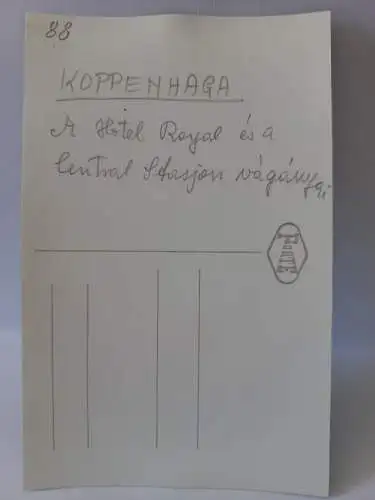 88
KOPPENHÁGA
A Hotel Royal és a
Central Stasjon vágányai
FORTE